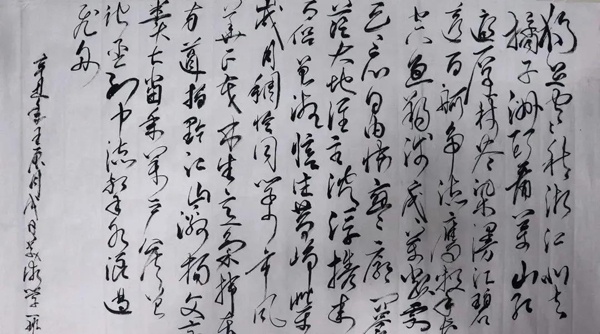 独立寒秋湘江北去
橘子洲头看万山红
遍层林尽染漫江碧
透百舸争流鹰击长
空鱼翔浅底万类霜
天竞自由怅寥廓问
苍茫大地谁主沉浮携来
百侣曾游忆往昔峥嵘
岁月稠恰同学少年风
华正茂书生意气挥斥
方遒指点江山激扬文字
粪土当年万户侯曾
记否到中流击水浪遏
飞舟
辛丑